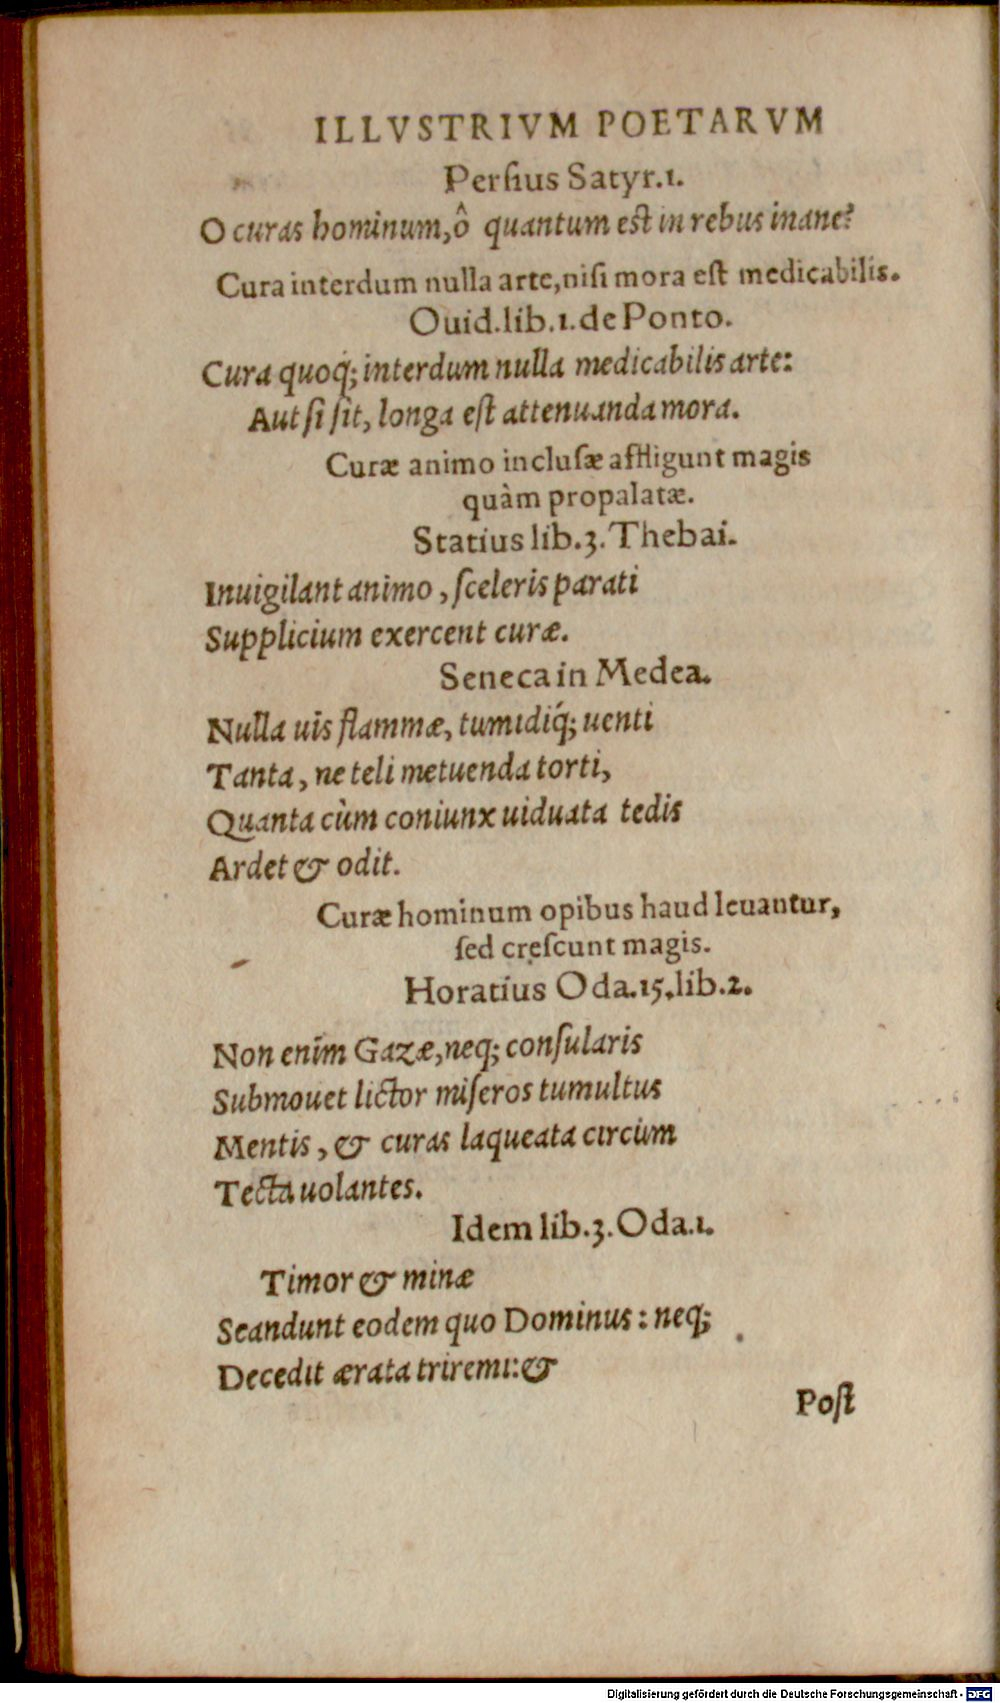 ILLVSTRIVM POETARVM
Perſius Satyr.1.
O curas hominum, ô quantum eſt in rebus inane?
Cura interdum nulla arte, niſi mora eſt medicabilis.
Ouid.lib.1.de Ponto.
Cura quoq́; interdum nulla medicabilis arte:
Aut ſi ſit, longa eſt attenuanda mora.
Curæ animo incluſæ affligunt magis
quàm propalatæ.
Statius lib.3.Thebai.
Inuigilant animo, ſceleris parati
Supplicium exercent curæ.
Seneca in Medea.
Nulla uis flammæ, tumidiq́; uenti
Tanta, ne teli metuenda torti,
Quanta cùm coniunx uiduata tedis
Ardet & odit.
Curæ hominum opibus haud leuantur,
ſed creſcunt magis.
Horatius Oda.15.lib.2.
Non enim Gazæ, neq; conſularis
Submouet lictor miſeros tumultus
Mentis, & curas laqueata circum
Tecta uolantes.
Idem lib.3.Oda.1.
Timor & minæ
Scandunt eodem quo Dominus: neq;
Decedit ærata triremi: &
Poſt
Digitalisierung gefördert durch die Deutsche Forschungsgemeinschaft - DFG